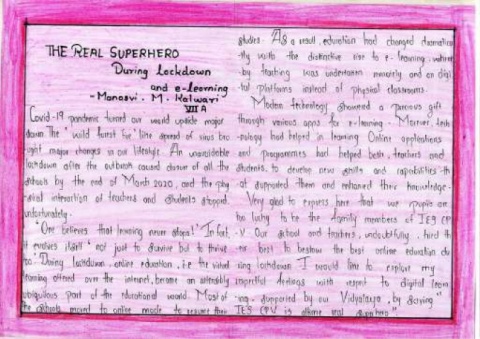 THE REAL SUPERHERO
During Lockdown
and e-learning
- Manasvi. M. Kalwari
VII A
Covid-19 pandemic turned our world upside major
down. The 'wild forest fire' like spread of virus bro
ught major changes in our lifestyle. An unavoidable
lockdown after the outbreak caused closure of all the
schools by the end of March 2020, and the phy
sical interaction of teachers and students stopped
unfortunately.
'One believes that learning never stops!' In fact,
it evolves itself 'not just to survive but to thrive
too'. During lockdown, online education, i.e the virtual
learning offered over the internet, became an ostensibly
ubiquitous part of the educational world. Most of
the schools moved to online mode to resume their
studies. As a result, education had changed dramatica
lly with the distinctive rise to e-learning, where
by teaching was undertaken remotely and on digi
tal platforms instead of physical classrooms.
Modern technology showered a precious gift
through various apps for e-learning. Moreover, tech
nology had helped in learning. Online applications
and programmes had helped both, teachers and
students, to develop new skills and capabilities th
at supported them and enhanced their knowledge.
Very glad to express here that we pupils are
too lucky to be the family members of IES CP
V. Our school and teachers, undoubtfully, tried th
eir best to bestow the best online education du
ring lockdown. I would like to explore my
respectful feelings with respect to digital learn
ing, supported by our Vidyalaya, by saying "
IES CPV is alltime real superhero"